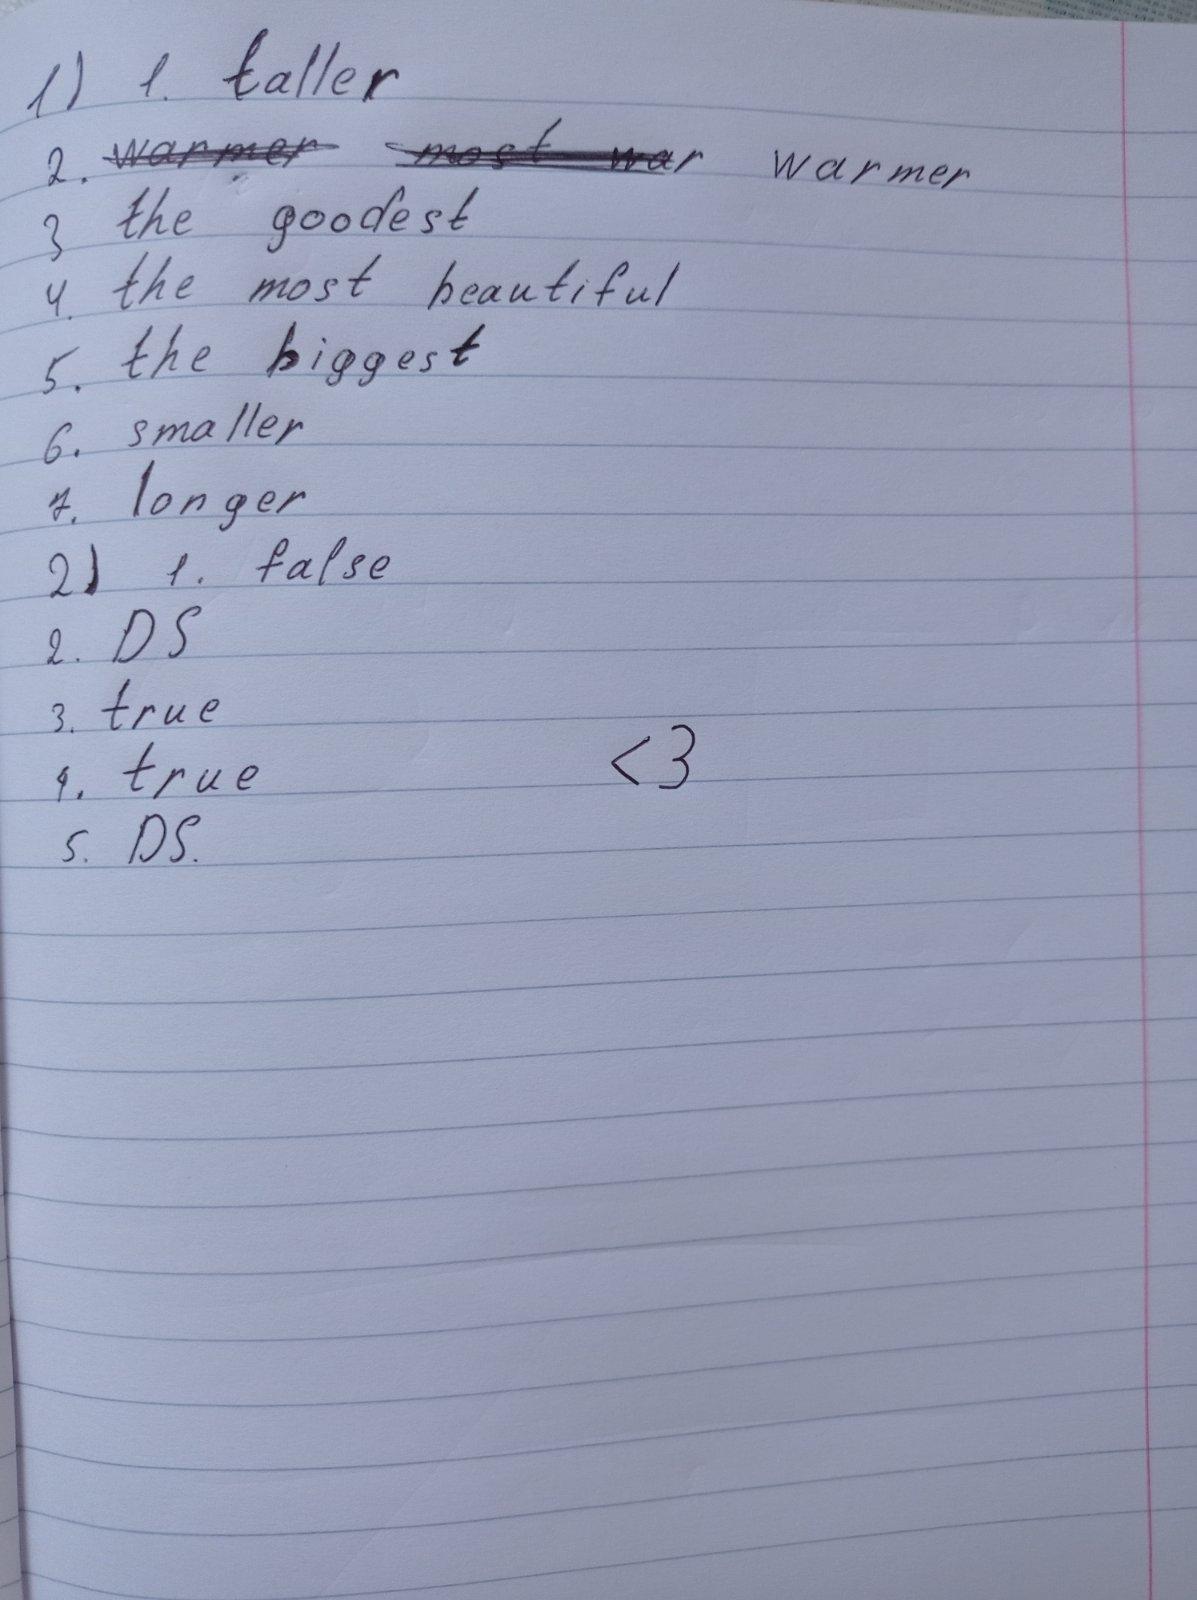 1) 1. taller
2. warmer most war warmer
3 the goodest
4. the most beautiful
5. the biggest
6. smaller
7. longer
2) 1. false
2. DS
3. true
4. true
<3
5. DS.